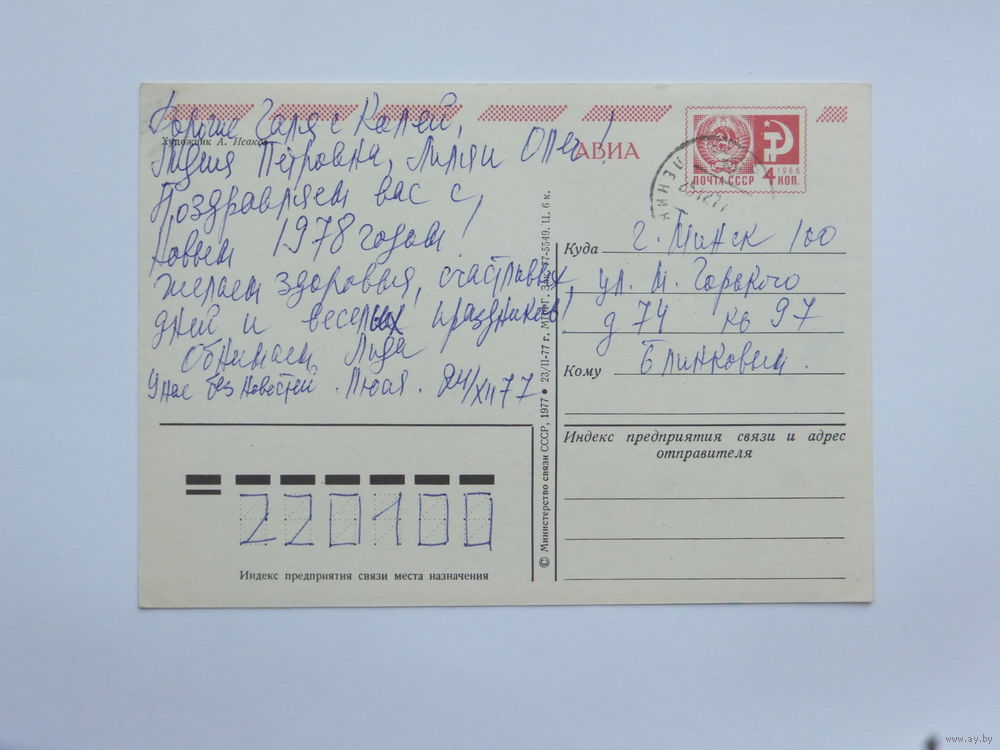 Дорогие Галя с Колей,
Художник А. Исаков
Лидия Петровна, Оля!
Поздравляем вас с
Новым 1978 годом!
желаем здоровья, счастливых,
дней и веселых праздников,
Обнимаем Лида
У нас без новостей. Люся. 24/XII 77
АВИА
ПОЧТА СССР
1966
4 КОП.
Куда г. Минск 100
ул. М. Горького
д 74 кв 97
Кому Блинковым.
Индекс предприятия связи и адрес
отправителя
220100
Индекс предприятия связи места назначения
© Министерство связи СССР, 1977 • 23/II-77 г. Ц. 6 к.
www.ay.by